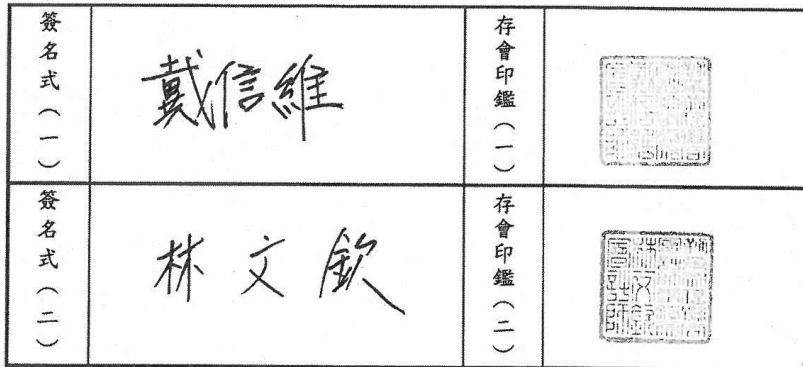 簽名式（一）
戴信維
存會印鑑（一）
簽名式（二）
林文欽
存會印鑑（二）
林文欽
會計師